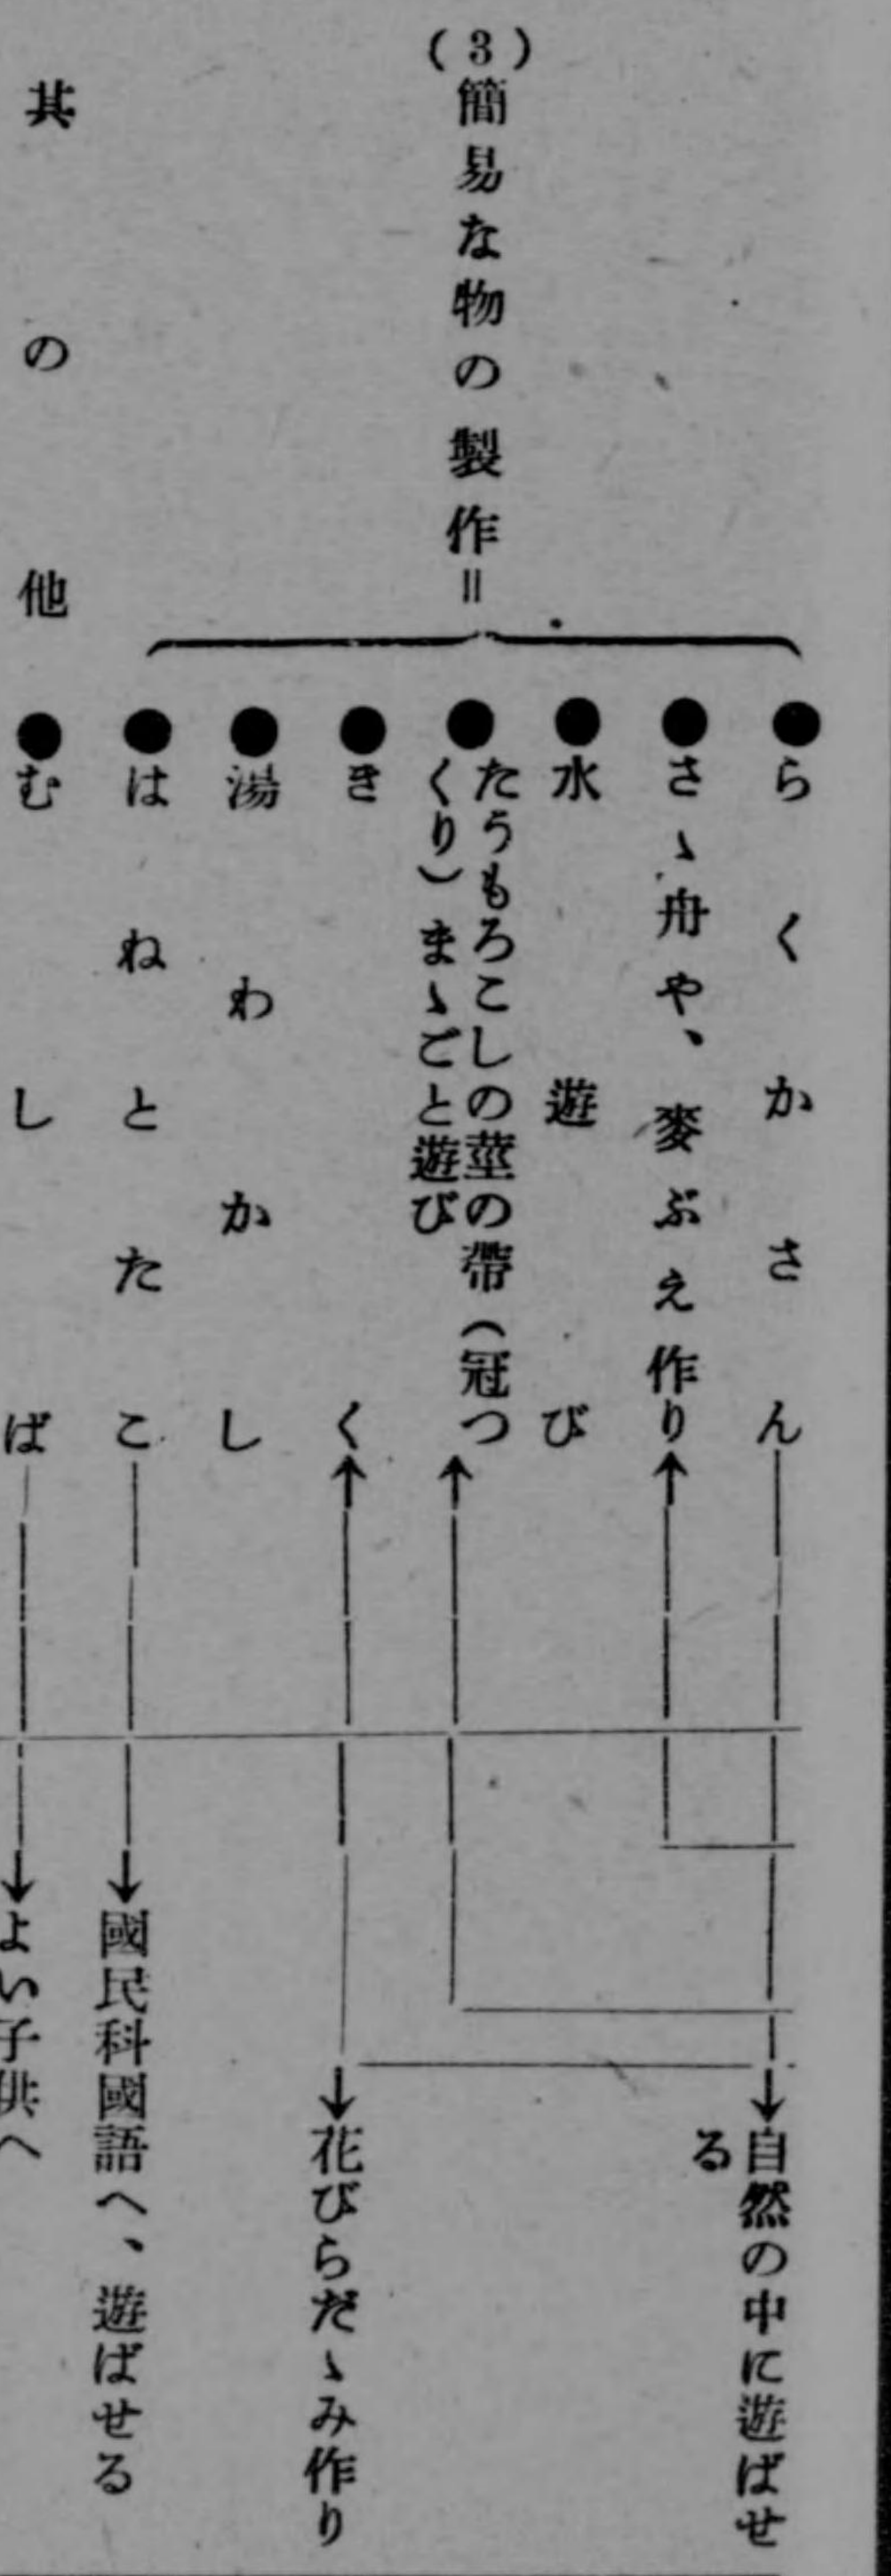 (3)簡易な物の製作=
●らくかさん
●さゝ舟や、麥ぶえ作り
●水遊び
●たうもろこしの莖の帶(冠つ
くり)まゝごと遊び
●きく
●湯わかし
●はねとたこ
自然の中に遊ばせ
る
花びらだゝみ作り
國民科國語へ、遊ばせる
其の他
●むしば
よい子供へ